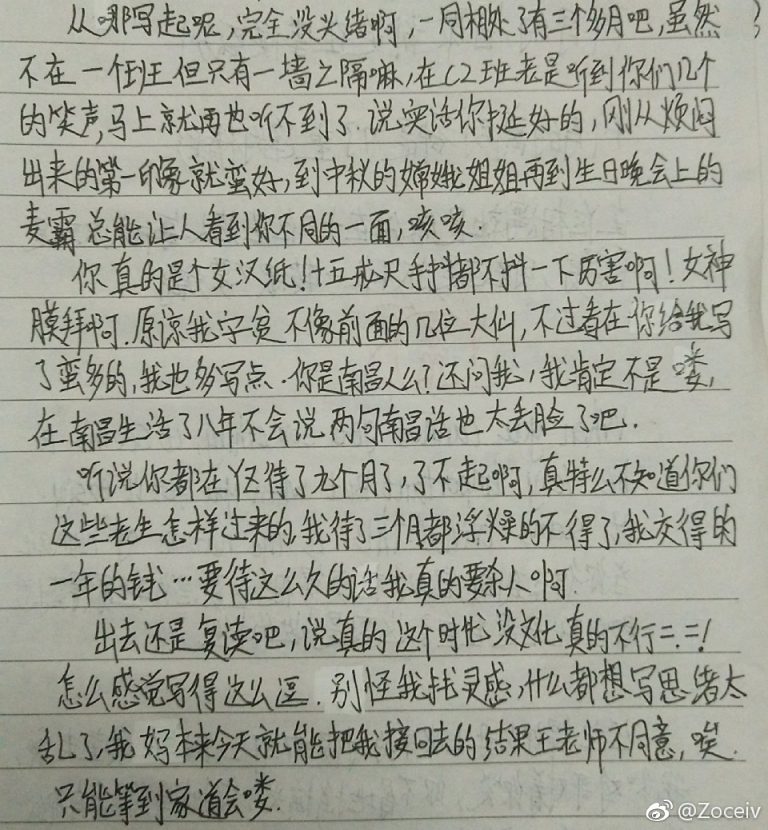 从哪写起呢,完全没头绪啊,一同相处了有三个多月吧,虽然
不在一个班王但只有一墙之隔嘛,在C2班老是听到你们几个
的笑声,马上就再也听不到了.说实话你挺好的,刚从烦闷
出来的第一印象就蛮好,到中秋的嫦娥姐姐再到生日晚会上的
麦霸总能让人看到你不同的一面,咳咳.
你真的是个女汉纸!十五戒尺手抖都不抖一下厉害啊!女神
膜拜啊.原谅我字贫不像前面的几位大仙,不过看在你给我写
了蛮多的,我也多写点.你是南昌人么?还问我,我肯定不是喽,
在南昌生活了八年不会说两句南昌话也太丢脸了吧.
听说你都在Y区待了九个月了,了不起啊,真特么不知道你们
这些老生怎样过来的,我待了三个月都浮燥的不得了,我交得的
一年的钱…要待这么久的话我真的要杀人啊.
出去还是复读吧,说真的这个时代没文化真的不行=.=!
怎么感觉写得这么逗.别怪我找灵感,什么都想写思绪太
乱了,我妈本来今天就能把我接回去的结果王老师不同意,唉.
只能等到家道会喽.
@Zoceiv